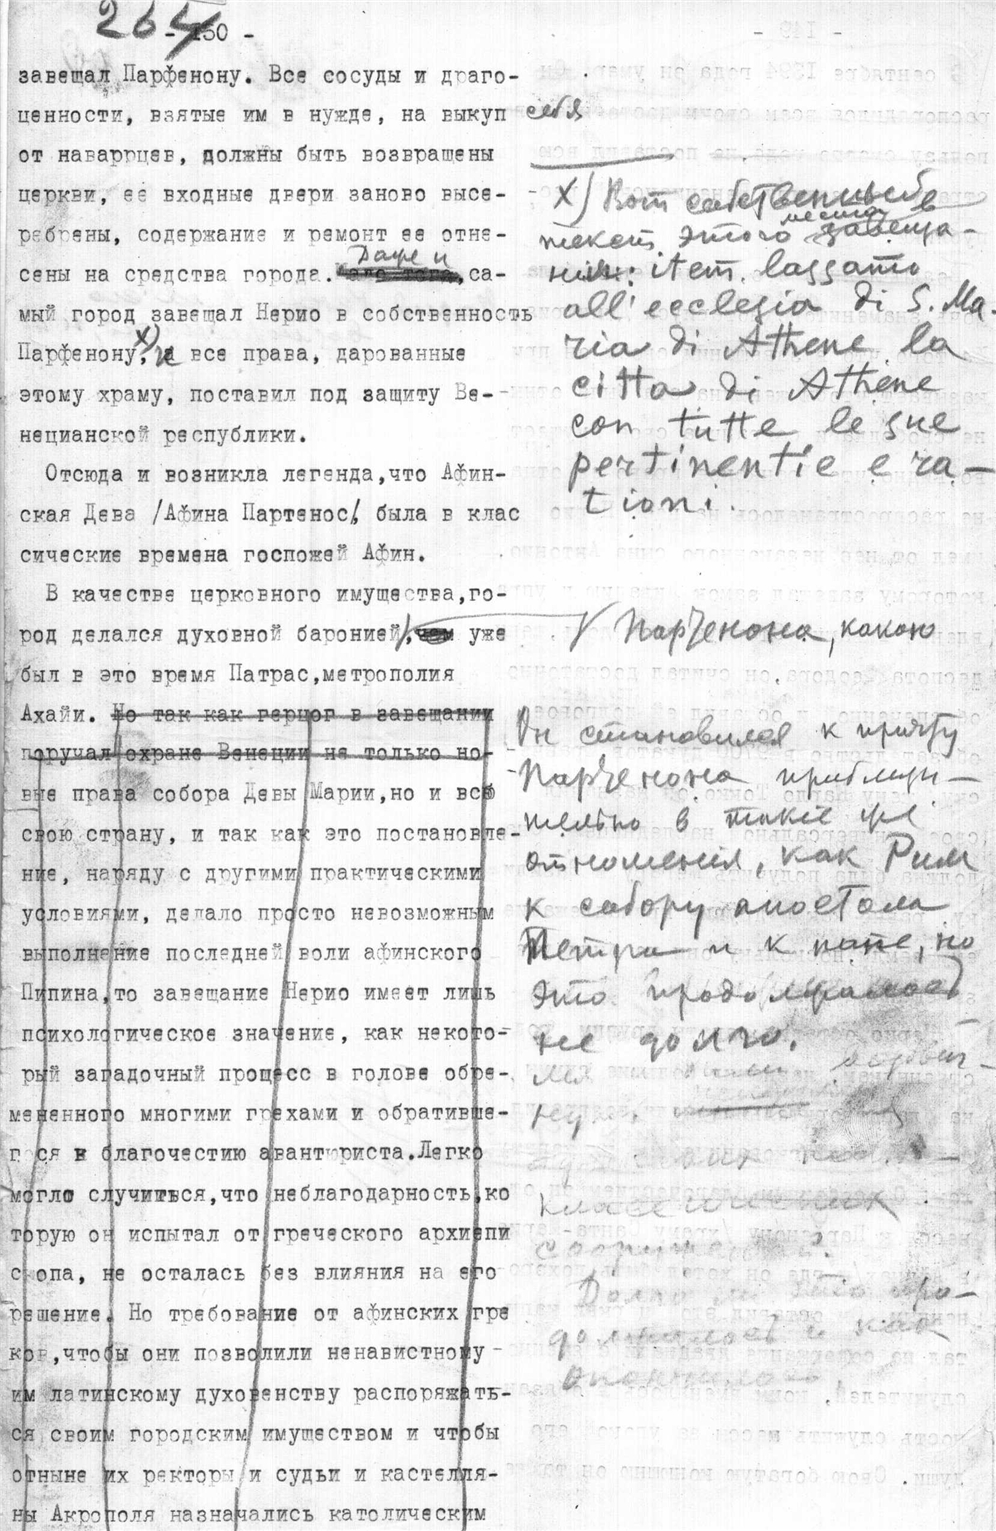 264
- 150 -
завещал Парфенону. Все сосуды и драго-
ценности, взятые им в нужде, на выкуп себя
от наваррцев, должны быть возвращены
церкви, ее входные двери заново высе-
ребрены, содержание и ремонт ее отне-
сены на средства города. Даже и са-
мый город завещал Нерио в собственность
Парфенону,X) и все права, дарованные
этому храму, поставил под защиту Ве-
нецианской республики.
Отсюда и возникла легенда,что Афин-
ская Дева /Афина Партенос/, была в клас
сические времена госпожей Афин.
В качестве церковного имущества,го-
род делался духовной баронией, чем уже
был в это время Патрас,метрополия
Ахайи. Но так как герцог в завещании
поручал охране Венеции не только но-
вые права собора Девы Марии,но и всю
свою страну, и так как это постановле-
ние, наряду с другими практическими
условиями, делало просто невозможным
выполнение последней воли афинского
Пипина,то завещание Нерио имеет лишь
психологическое значение, как некото-
рый загадочный процесс в голове обре-
мененного многими грехами и обративше-
гося к благочестию авантюриста.Легко
могло случиться,что неблагодарность,ко
торую он испытал от греческого архиепи
скопа, не осталась без влияния на его
решение. Но требование от афинских гре
ков,чтобы они позволили ненавистному
им латинскому духовенству распоряжать-
ся своим городским имуществом и чтобы
отныне их ректоры и судьи и кастелля-
ны Акрополя назначались католическим
X) Вот собственное
текст этого места завеща-
ния: item lassamo
all' ecclesia di S. Ma-
ria di Athene la
citta di Athene
con tutte le sue
pertinentie e ra-
tioni.
Парфенона, какою
Он становился к причту
Парфенона приблизи-
тельно в такие же
отношения, как Рим
к собору апостола
Петра и к папе, но
это продолжалось
не долго.
классических
сооружений.
Долго ли это про-
должалось и как
окончилось